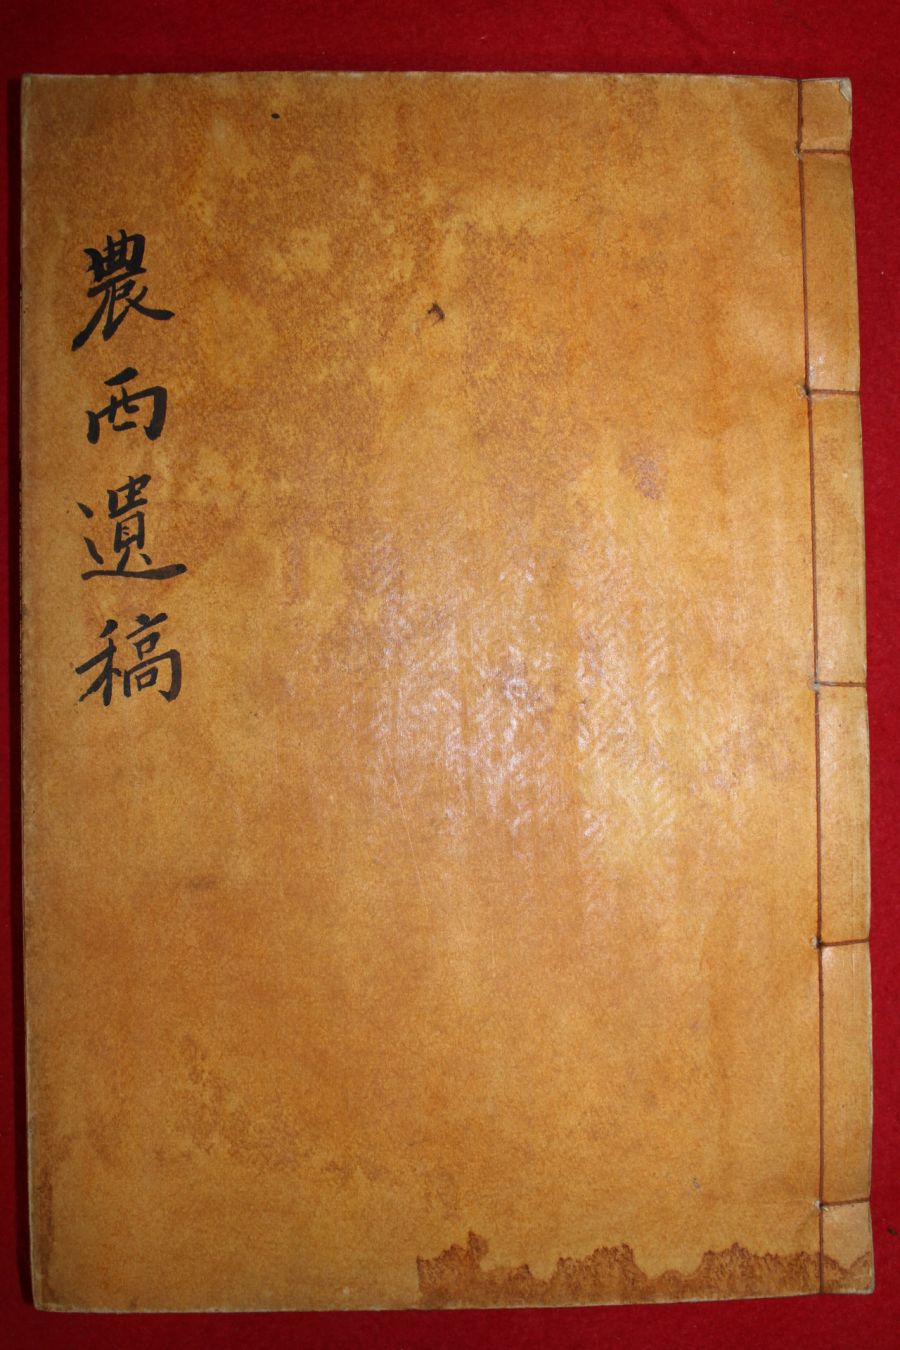 農西遺稿